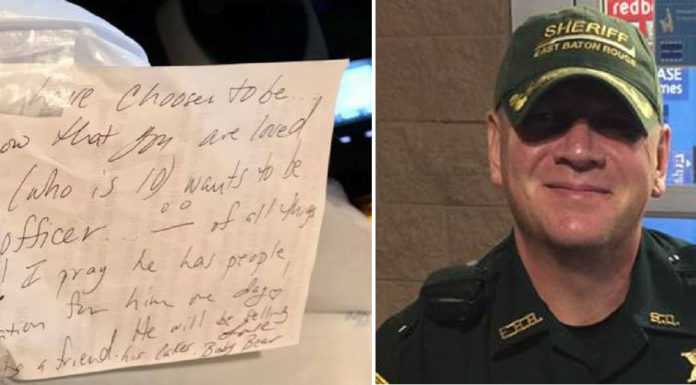 have Choosen to be
ow that you are loved
(who is 10) wants to be
officer... of all things
I pray he has people
for him one day
He will be selling
a friend. his cakes.
Baby Bear
SHERIFF
EAST BATON ROUGE
redb
ASE
mes
S.O.